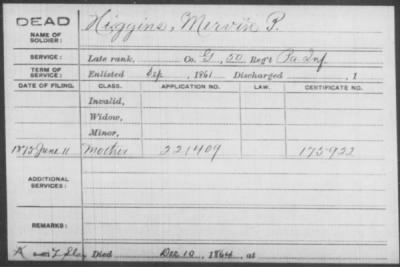 DEAD
NAME OF SOLDIER:
Higgins, Mervin P.
SERVICE:
Late rank, Co. G, 50 Reg't Pa Inf
TERM OF SERVICE:
Enlisted Sep , 1861 Discharged , 1
DATE OF FILING. CLASS. APPLICATION NO. LAW. CERTIFICATE NO.
Invalid,
Widow,
Minor,
1875 June 11 Mother 221409 175922
ADDITIONAL SERVICES:
REMARKS:
K Died Dec 10, 1864, at